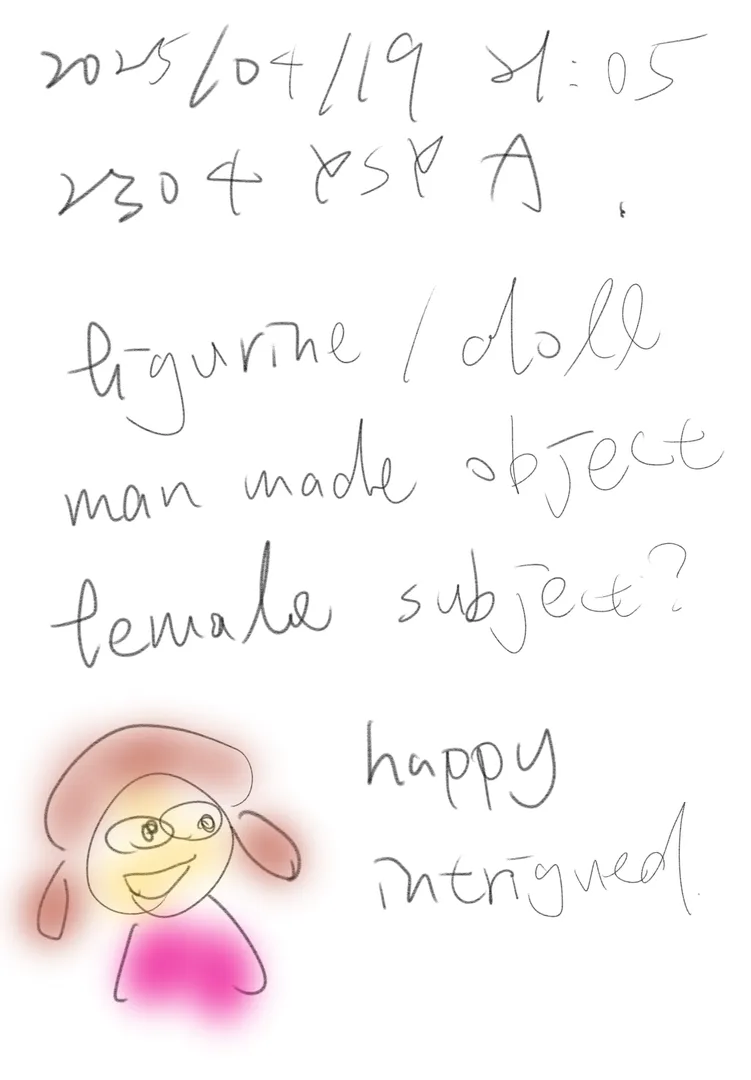 2025/04/19 21:05
2304 YSY A.
figurine / doll
man made object
female subject?
happy
intrigued.